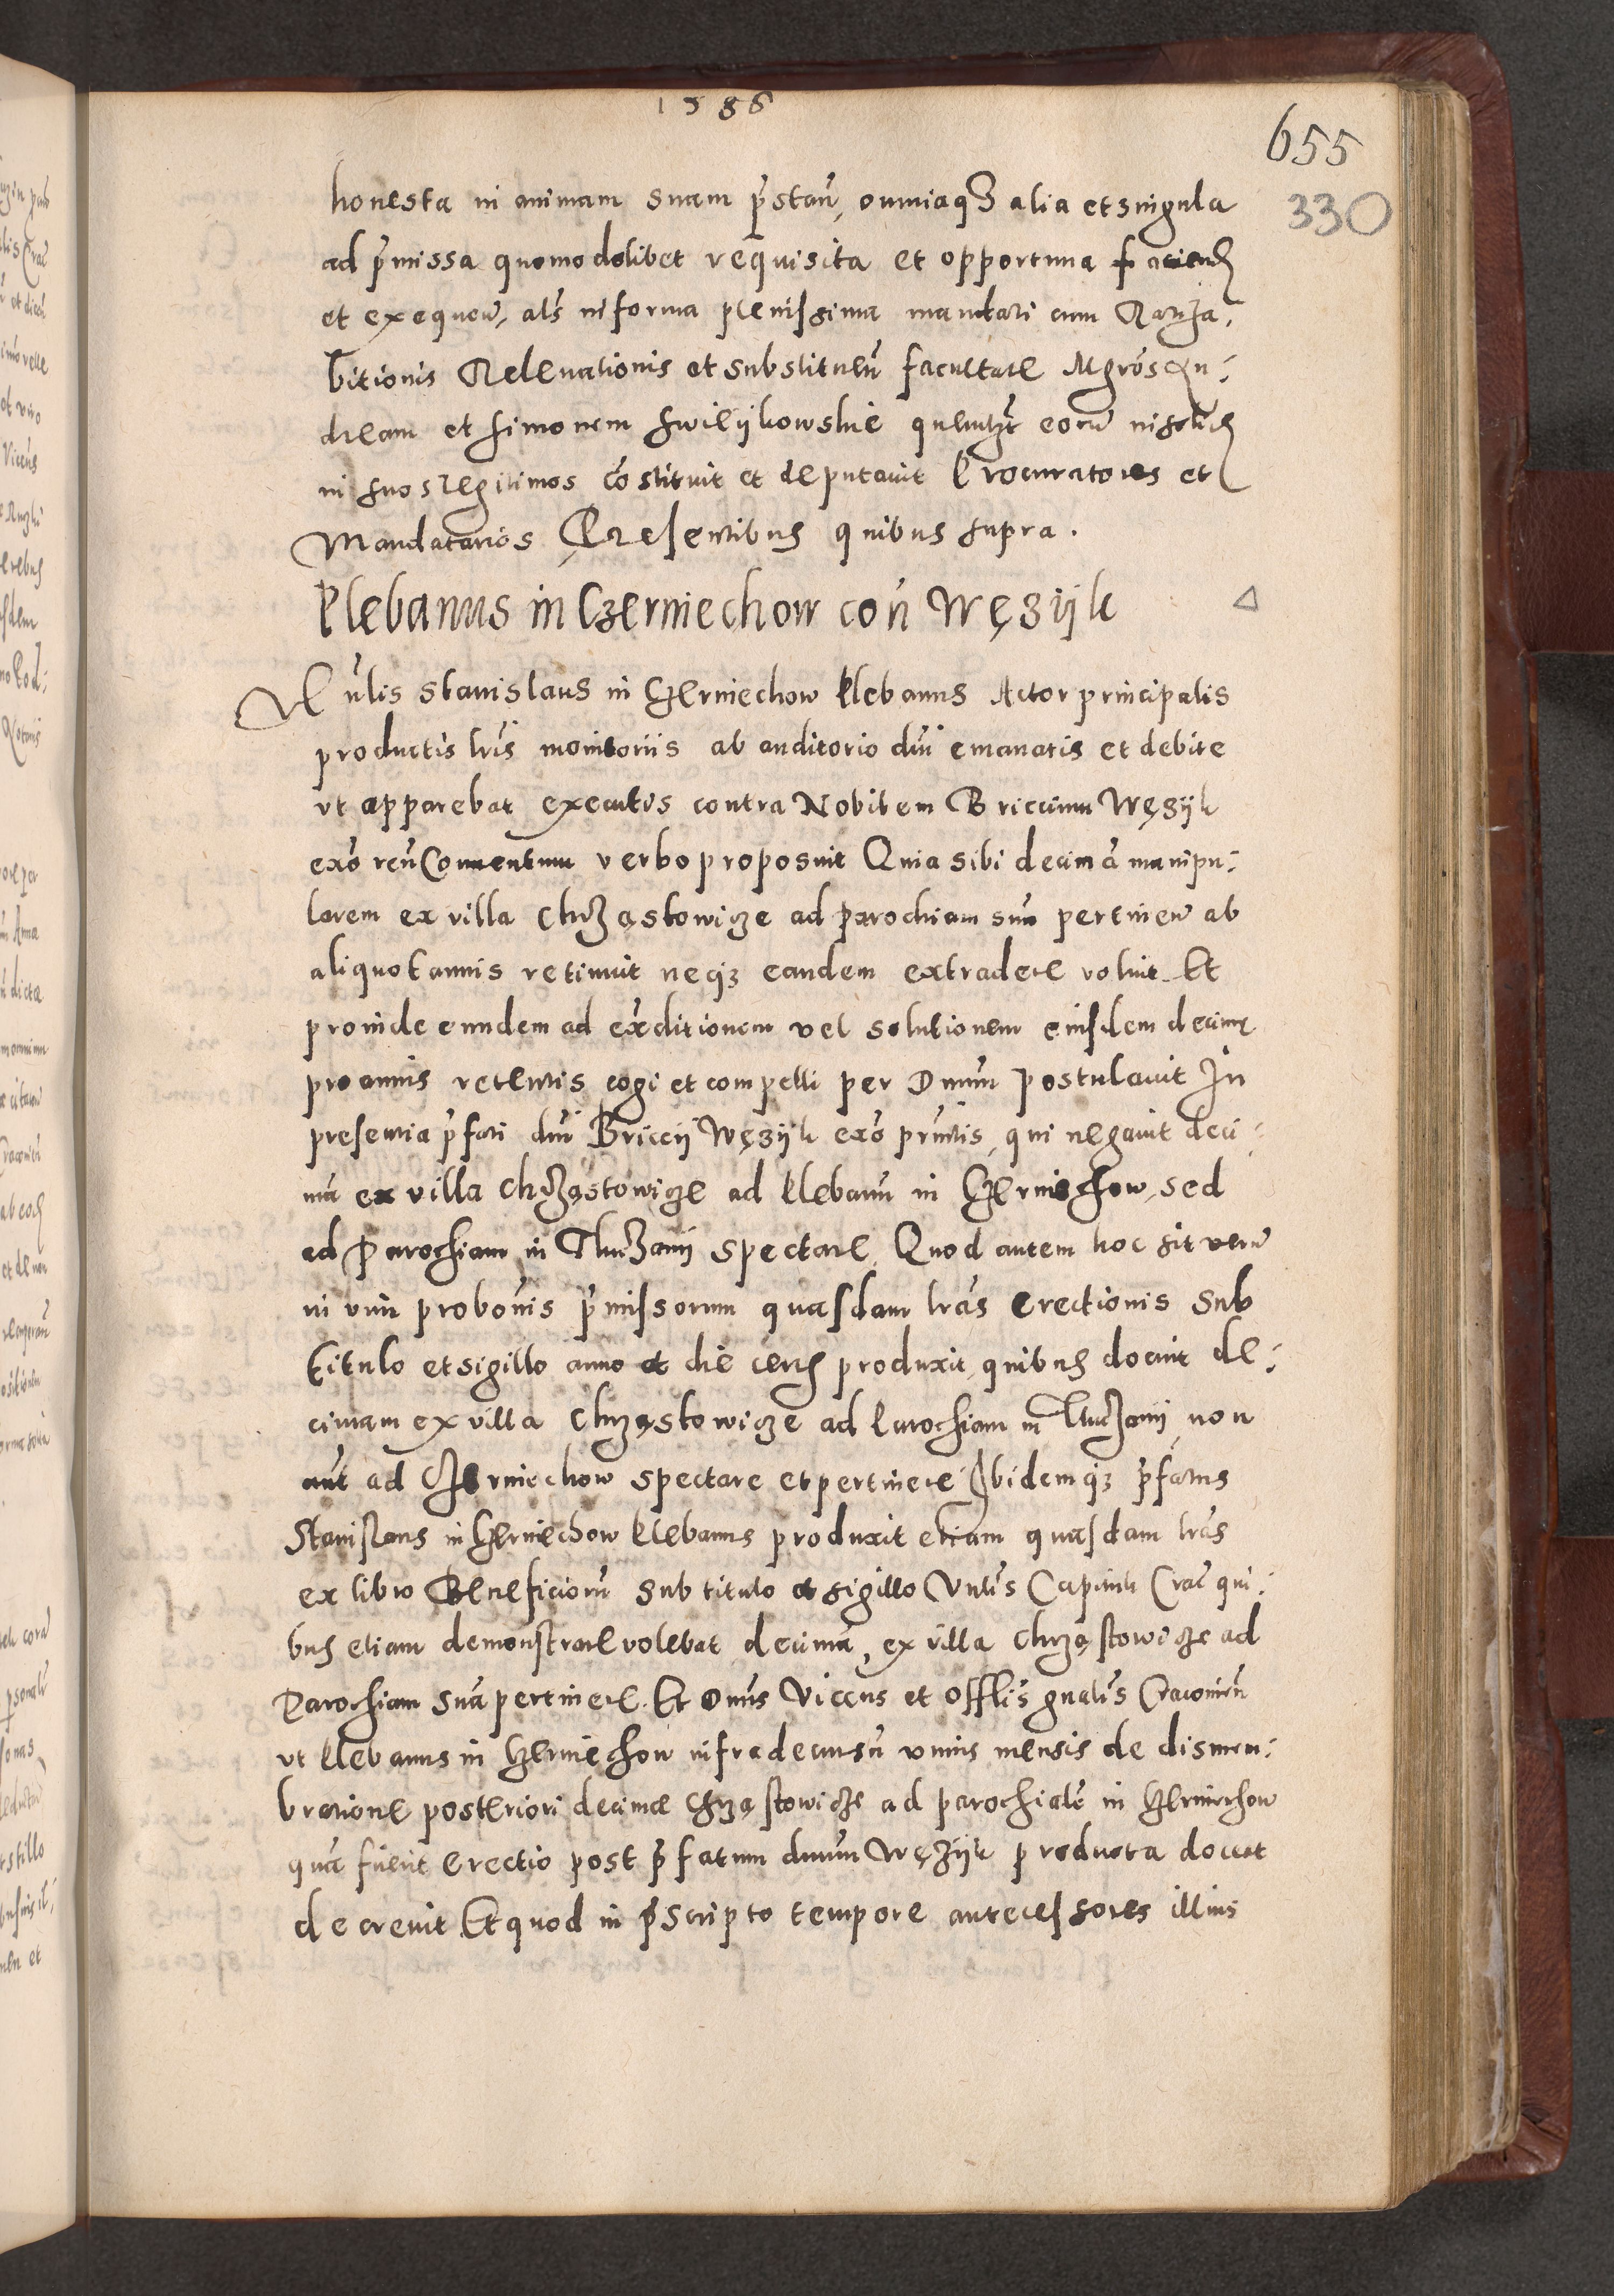 1586
655
330
honesta in animam suam pr̃stañ, omniaqȝ alia et singula
ad pr̃missa quomodolibet requisita et opportuna faciend
et exequeñ, als̃ in forma plenissima mandati cum Ratiha¸
bitionis Relevationis et substituen̄ facultate Mgros An:
dream et Simonem Swieijkowskie quemlȝt eorū insolid
in suos legitimos cōstituit et deputavit Procuratores et
Mandatarios Presentibus quibus supra.
Plebanus in Czerniechow con̄ Węzijk
Vn̄lis Stanislaus in Czerniechow Plebanus Actor principalis
productis lrīs monitoriis ab auditorio dnī emanatis et debite
vt apparebat executis contra Nobilem Briccium Węzijk
exō reū Conventum verbo proposuit Quia sibi decimā manipu:
larem ex villa Chrząstowicze ad parochiam suā pertineñ ab
aliquot annis retinuit neqȝ eandem extradere voluit. Et
proinde eundem ad exditionem vel solutionem eiusdem decimę
pro annis retentis cogi et compelli per Dnum postulavit In
presentia pr̃fati dnī Briccij Węzijk exō prn̄tis, qui negavit deci:
mā ex villa Chrząstowicze ad Plebanū in Czerniechow, sed
ad Parochiam in Tluczanij spectare, Quod autem hoc sit verū
in vim probōnis pr̃missorum quasdam lrās erectionis sub
titulo et sigillo anno et die certis produxit, quibus docuit de:
cimam ex villa Chrząstowicze ad Parochiam in Tluczanij non
aut̄ ad Czerniechow spectare et pertinere Ibidemqȝ pr̃fatus
Stanislaus in Czerniechow Plebanus produxit etiam quasdam lrās
ex libro Beneficiorū sub titulo et sigillo Vn̄lis Capituli Crac̄ qui:
bus etiam demonstrare volebat decimā, ex villa Chrząstowicze ad
Parochiam suā pertinere. Et Dnus Viceñs et Offlis gn̄alis Cracovien̄
vt Plebanus in Czerniechow infra decursū vnius mensis de dismem:
bratione posteriori decimæ Chrząstowicze ad parochialē in Czerniechow
quā fuerit erectio post pr̃fatum dnum Węzijk producta doceat
decrevit Et quod in pr̃scripto tempore antecessores illius